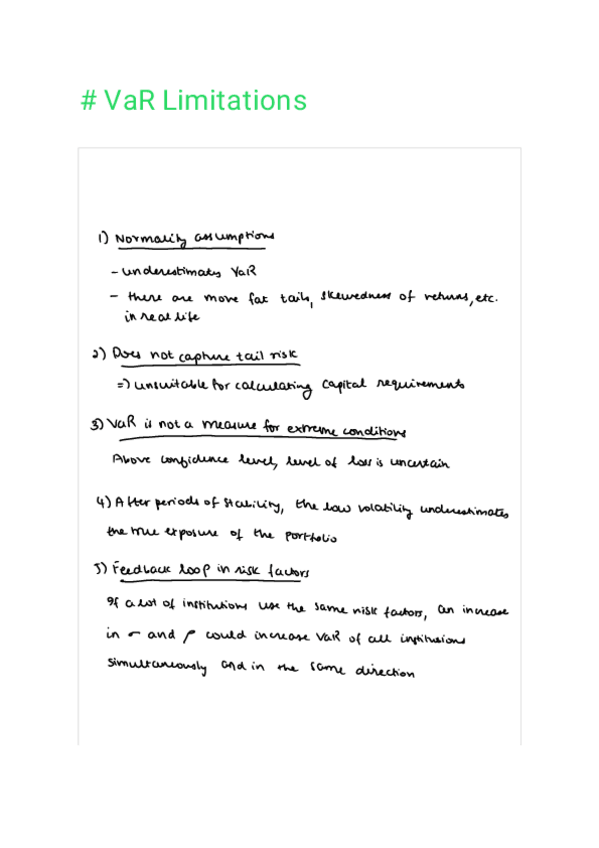 # VaR Limitations
1) Normality assumptions
- underestimates VaR
- there are more fat tails, skewedness of returns, etc.
in real life
2) Does not capture tail risk
=) unsuitable for calculating capital requirements
3) VaR is not a measure for extreme conditions
Above confidence level, level of loss is uncertain
4) After periods of stability, the low volatility underestimates
the true exposure of the portfolio
5) Feedback loop in risk factors
If a lot of institutions use the same risk factors, an increase
in σ and ρ could increase VaR of all institusions
simultaneously and in the same direction